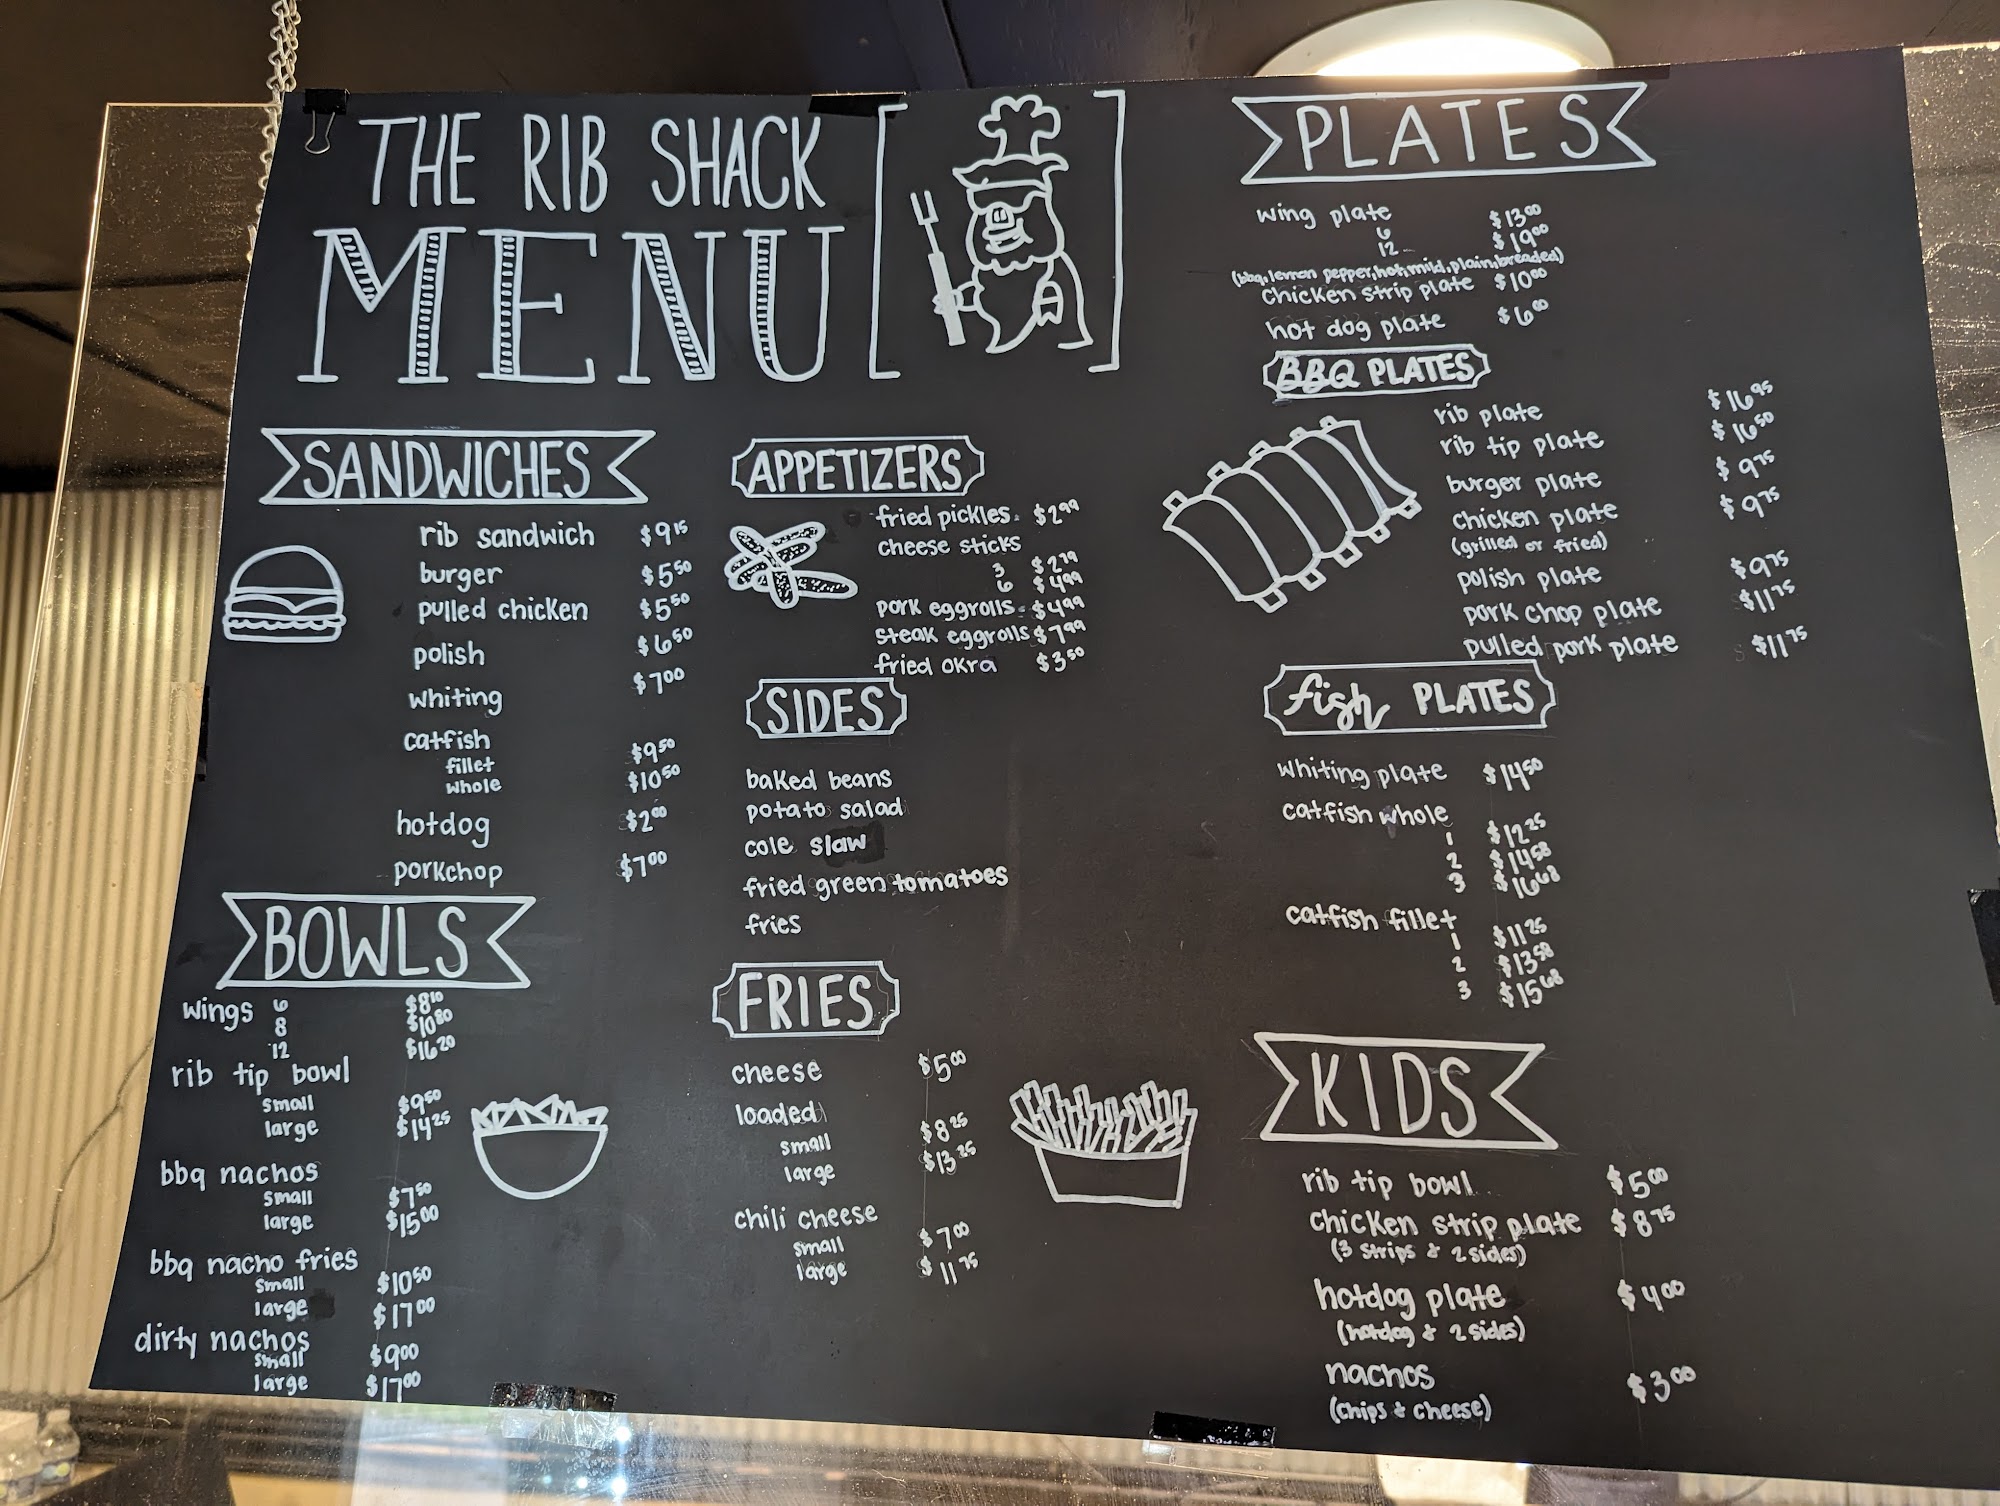 THE RIB SHACK
MENU
SANDWICHES
rib sandwich $9.15
burger $5.50
pulled chicken $5.50
polish $6.50
whiting $7.00
catfish
fillet $9.50
whole $10.50
hotdog $2.00
porkchop $7.00
BOWLS
wings 6 $8.10
8 $10.80
12 $16.20
rib tip bowl
small $9.50
large $14.25
bbq nachos
small $7.50
large $15.00
bbq nacho fries
small $10.50
large $17.00
dirty nachos
small $9.00
large $17.00
APPETIZERS
fried pickles $2.99
cheese sticks
3 $2.79
6 $4.99
pork eggrolls $4.99
steak eggrolls $7.99
fried okra $3.50
SIDES
baked beans
potato salad
cole slaw
fried green tomatoes
fries
FRIES
cheese $5.00
loaded
small $8.25
large $13.25
chili cheese
small $7.00
large $11.75
PLATES
wing plate
6 $13.00
12 $19.00
(bbq, lemon pepper, hot, mild, plain, breaded)
chicken strip plate $10.00
hot dog plate $6.00
BBQ PLATES
rib plate $16.95
rib tip plate $16.50
burger plate $9.75
chicken plate $9.75
(grilled or fried)
polish plate $9.75
pork chop plate $11.75
pulled pork plate $11.75
fish PLATES
whiting plate $14.50
catfish whole
1 $12.25
2 $14.58
3 $16.68
catfish fillet
1 $11.25
2 $13.58
3 $15.68
KIDS
rib tip bowl $5.00
chicken strip plate $8.75
(3 strips & 2 sides)
hotdog plate $4.00
(hotdog & 2 sides)
nachos $3.00
(chips & cheese)